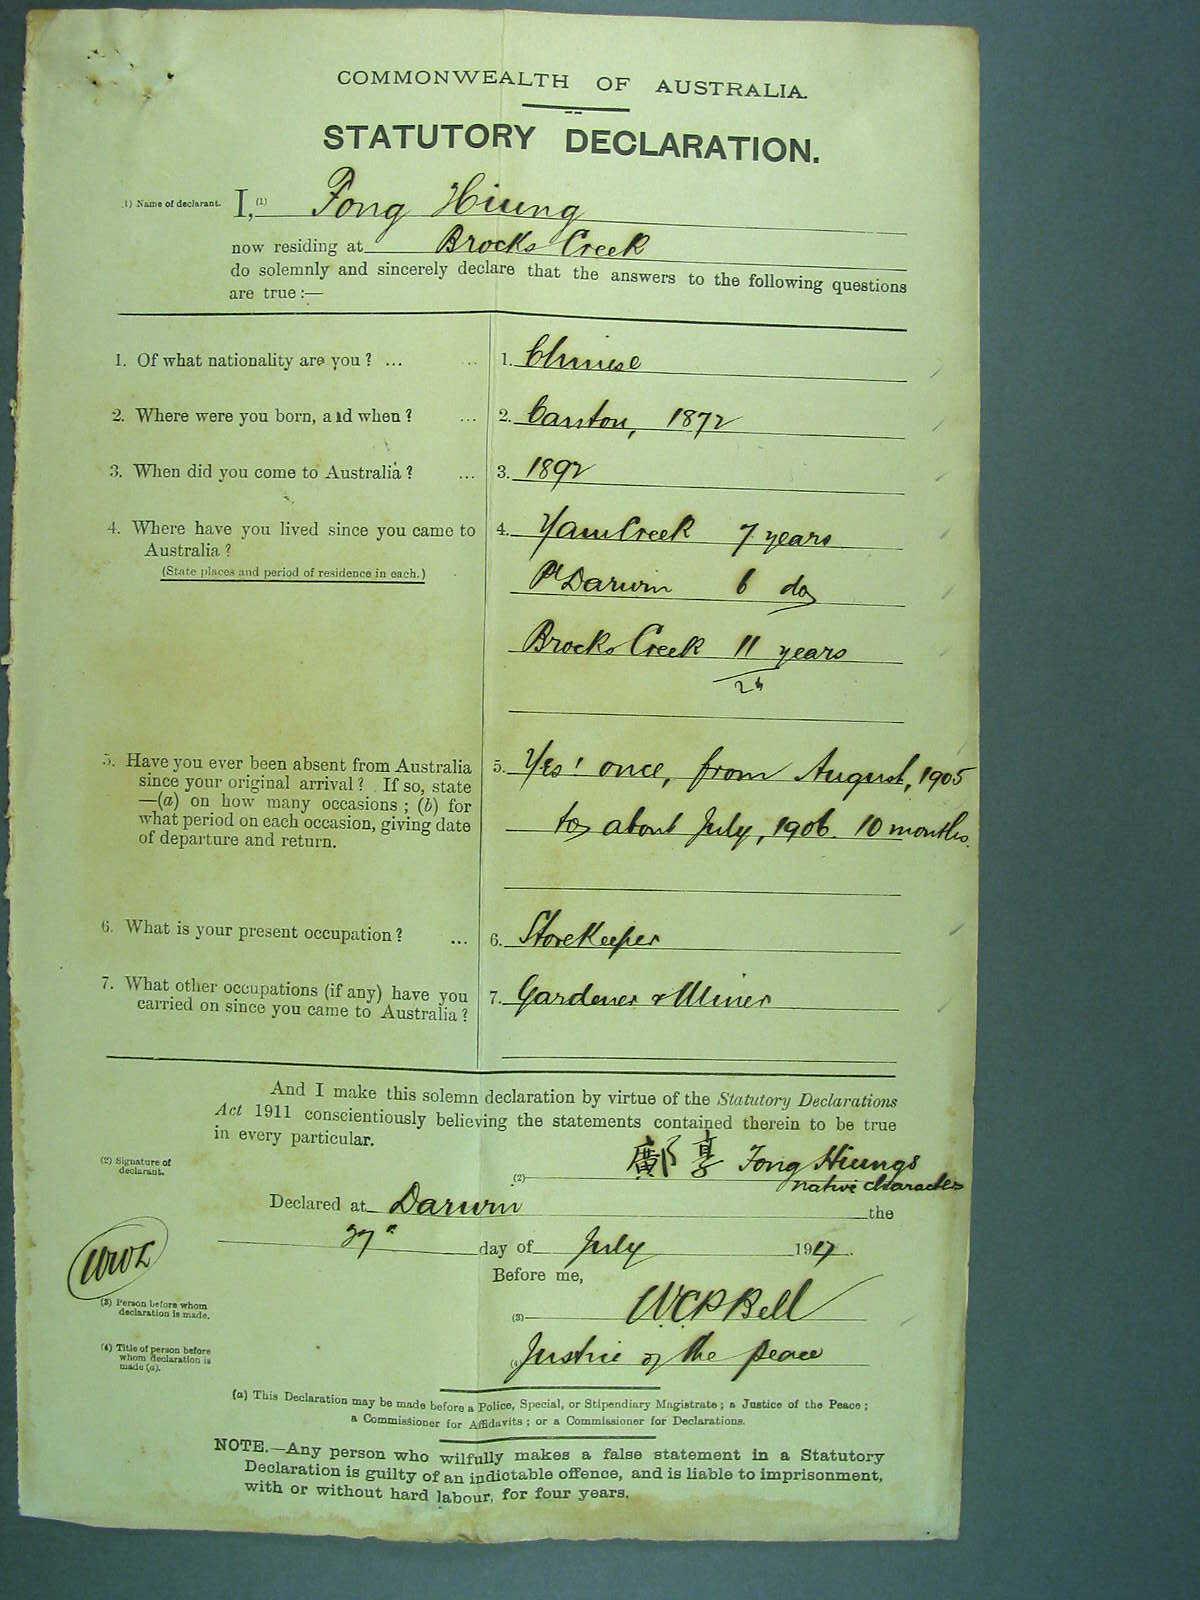 COMMONWEALTH OF AUSTRALIA.
STATUTORY DECLARATION.
(1) Name of declarant. I,(1) Fong Hiung
now residing at Brocks Creek
do solemnly and sincerely declare that the answers to the following questions
are true:—
1. Of what nationality are you? ... ... 1. Chinese
2. Where were you born, and when? ... 2. Canton, 1872
3. When did you come to Australia? ... 3. 1892
4. Where have you lived since you came to 4. Yam Creek 7 years
Australia?
(State places and period of residence in each.)
Pt Darwin 6 do
Brocks Creek 11 years
24
5. Have you ever been absent from Australia 5. Yes! once, from August, 1905
since your original arrival? If so, state
—(a) on how many occasions; (b) for
what period on each occasion, giving date to about July, 1906. 10 months.
of departure and return.
6. What is your present occupation? ... 6. Storekeeper
7. What other occupations (if any) have you 7. Gardener & Miner
carried on since you came to Australia?
And I make this solemn declaration by virtue of the Statutory Declarations
Act 1911 conscientiously believing the statements contained therein to be true
in every particular.
(2) Signature of
declarant.
(2) 鄺亨 Fong Hiungs
native character
Declared at Darwin the
27th day of July 1917.
Before me,
(3) Person before whom
declaration is made.
(3) W.C.P. Bell
(4) Title of person before
whom declaration is
made (a).
(4) Justice of the peace
(a) This Declaration may be made before a Police, Special, or Stipendiary Magistrate; a Justice of the Peace;
a Commissioner for Affidavits; or a Commissioner for Declarations.
NOTE.—Any person who wilfully makes a false statement in a Statutory
Declaration is guilty of an indictable offence, and is liable to imprisonment,
with or without hard labour, for four years.